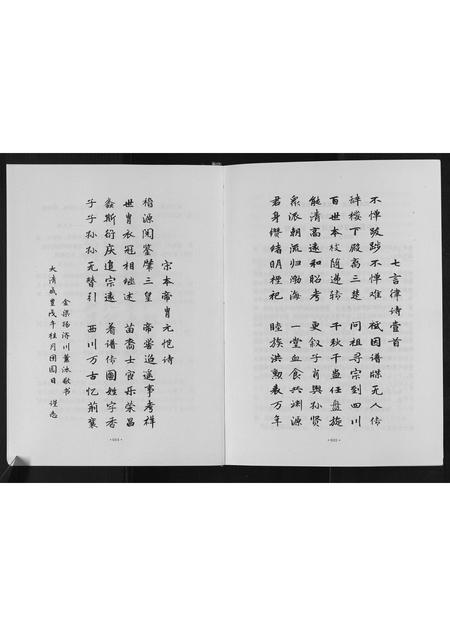 七言律诗壹首
不惮跋涉不惮难 祗因谱牒无人传
辞楼下殿离三楚 问祖寻宗到四川
百世本枝随递转 千秋千盏任盘旋
能清高远和昭考 更叙子肖与孙贤
派朝流归渤海 一堂血食共渊源
君身缵绪明禋祀 睦族洪勋表万年
宋本帝胄元恺诗
稽源阅鉴肇三皇 帝喾追遥事考祥
世胄衣冠相继述 苗裔士宦乐荣昌
螽斯衍庆追宗远 着谱传图姓字香
子子孙孙无替引 西川万古忆荆襄
金梁扬济川薰沐敬书
大清咸丰戊午年桂月团圆日 谨志